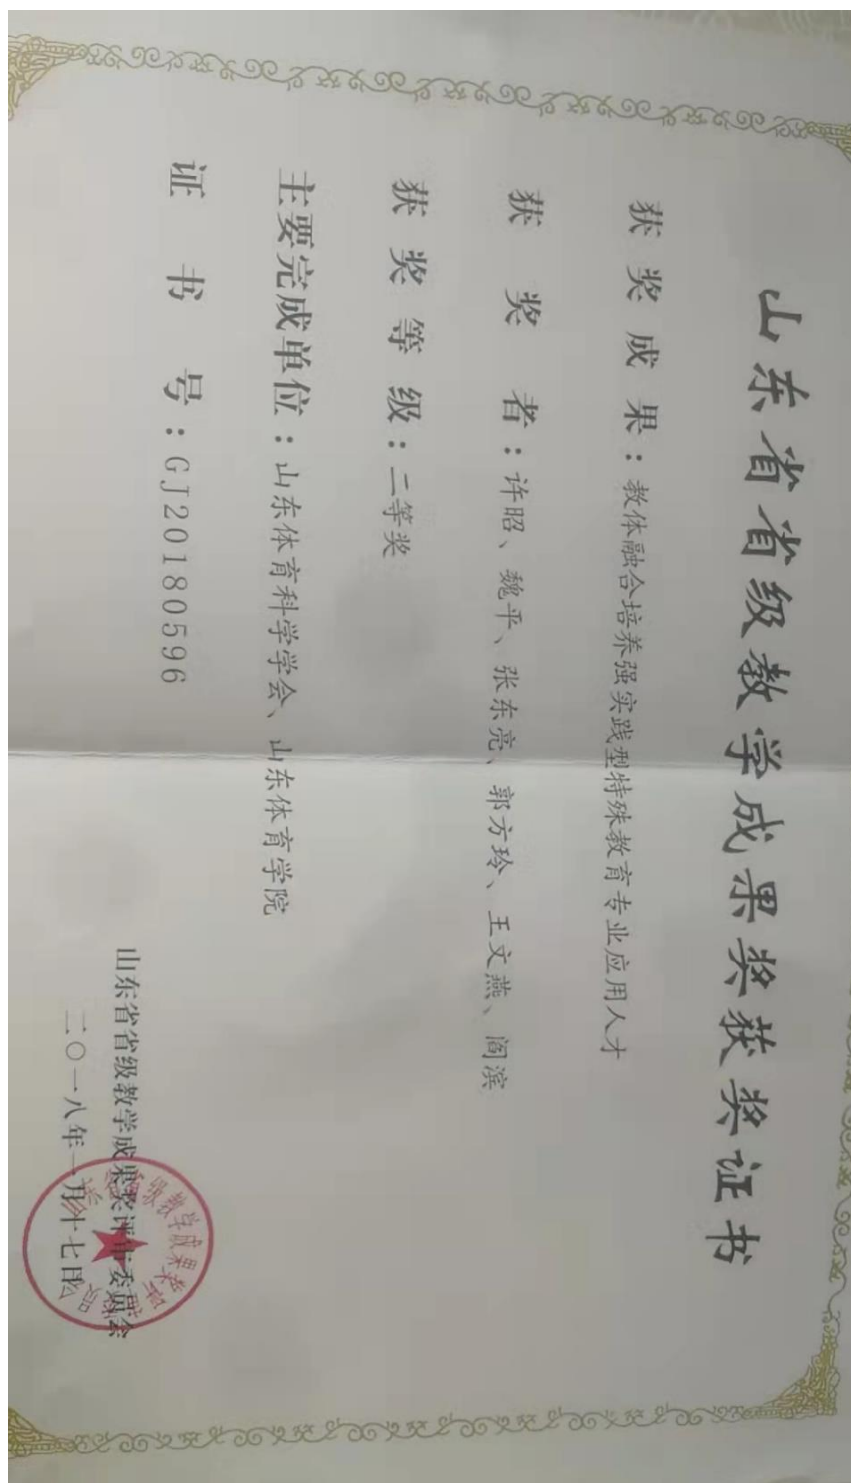 山东省省级教学成果奖获奖证书
获奖成果：教体融合培养强实践型特殊教育专业应用人才
获奖者：许昭、魏平、张东亮、郭方玲、王文燕、阎滨
获奖等级：二等奖
主要完成单位：山东体育科学学会、山东体育学院
证书号：GJ20180596
山东省省级教学成果奖评审委员会
二〇一八年一月十七日